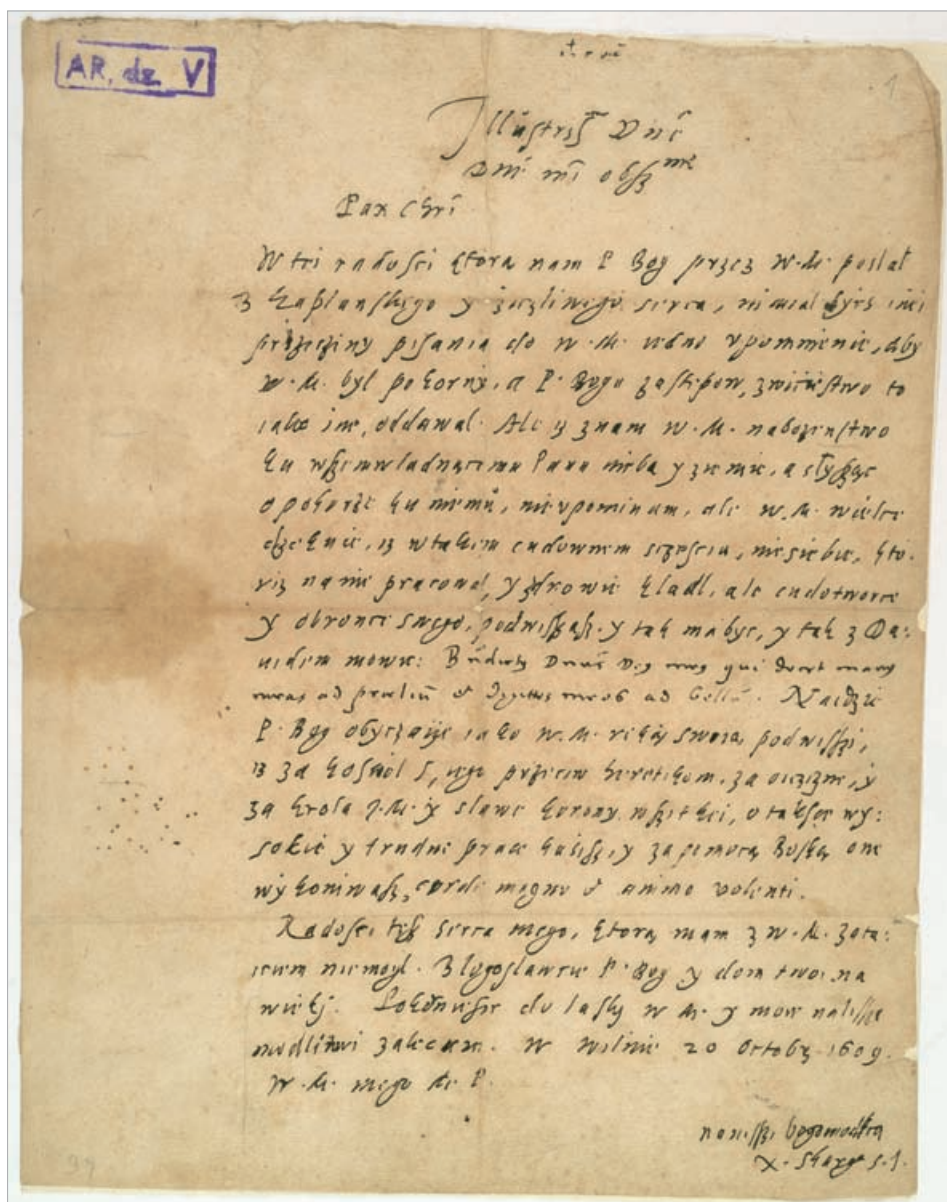 AR. dz. V
1
Illustriss Dne
Dne mi obss me
Pax Chri
W tei radosci ktorą nam P Bog przez W. M. poslal
z kaplanskego y zyczliwego serca, inei
przyczyny pisania do W. M. iedno vpomnienie, aby
W. M. byl pokorny, a P. Bogu zastepow, zwiciestwo to
iako ine, oddawal. Ale iz znam W. M. nabozenstwo
ku wszemwladnącemu Panu nieba y ziemie, a slysząc
o pokorze ku niemu, nie vpominam, ale W. M. wielce
dziekuie, iz w takiem cudownem sczesciu, nie siebie, kto-
ryz na nie pracowal, y zdrowie kladl, ale cudotworce
y obronce swego, podwissasz. y tak ma byc, y tak z Da-
uidem mowic: Bndictus Dnus Ds meus qui docet manus
meas ad praeliu & digitos meos ad bellu. Naidzie
P. Bog obyczaie iako W. M. reką swoią podwissi,
iz za kosciol S, iego przeciw heretikom, za oiczizne, y
za krola J. M. y slawe korony wszitkei, o takze wy-
sokie y trudne prace kusissz, y za pomocą Boską one
wykoniwasz, corde magno & animo volenti.
Radosci tyss serca mego, ktorą mam z W. M.
niemogl. Blogoslawze P. Bog y dom twoi na
wieki. do lasky W M. y
modlitwi zalecam. W Wilnie 20 Octobr. 1609.
W. M. mego M. P.
naniszszi bogomodlca
X. Skarga S. J.